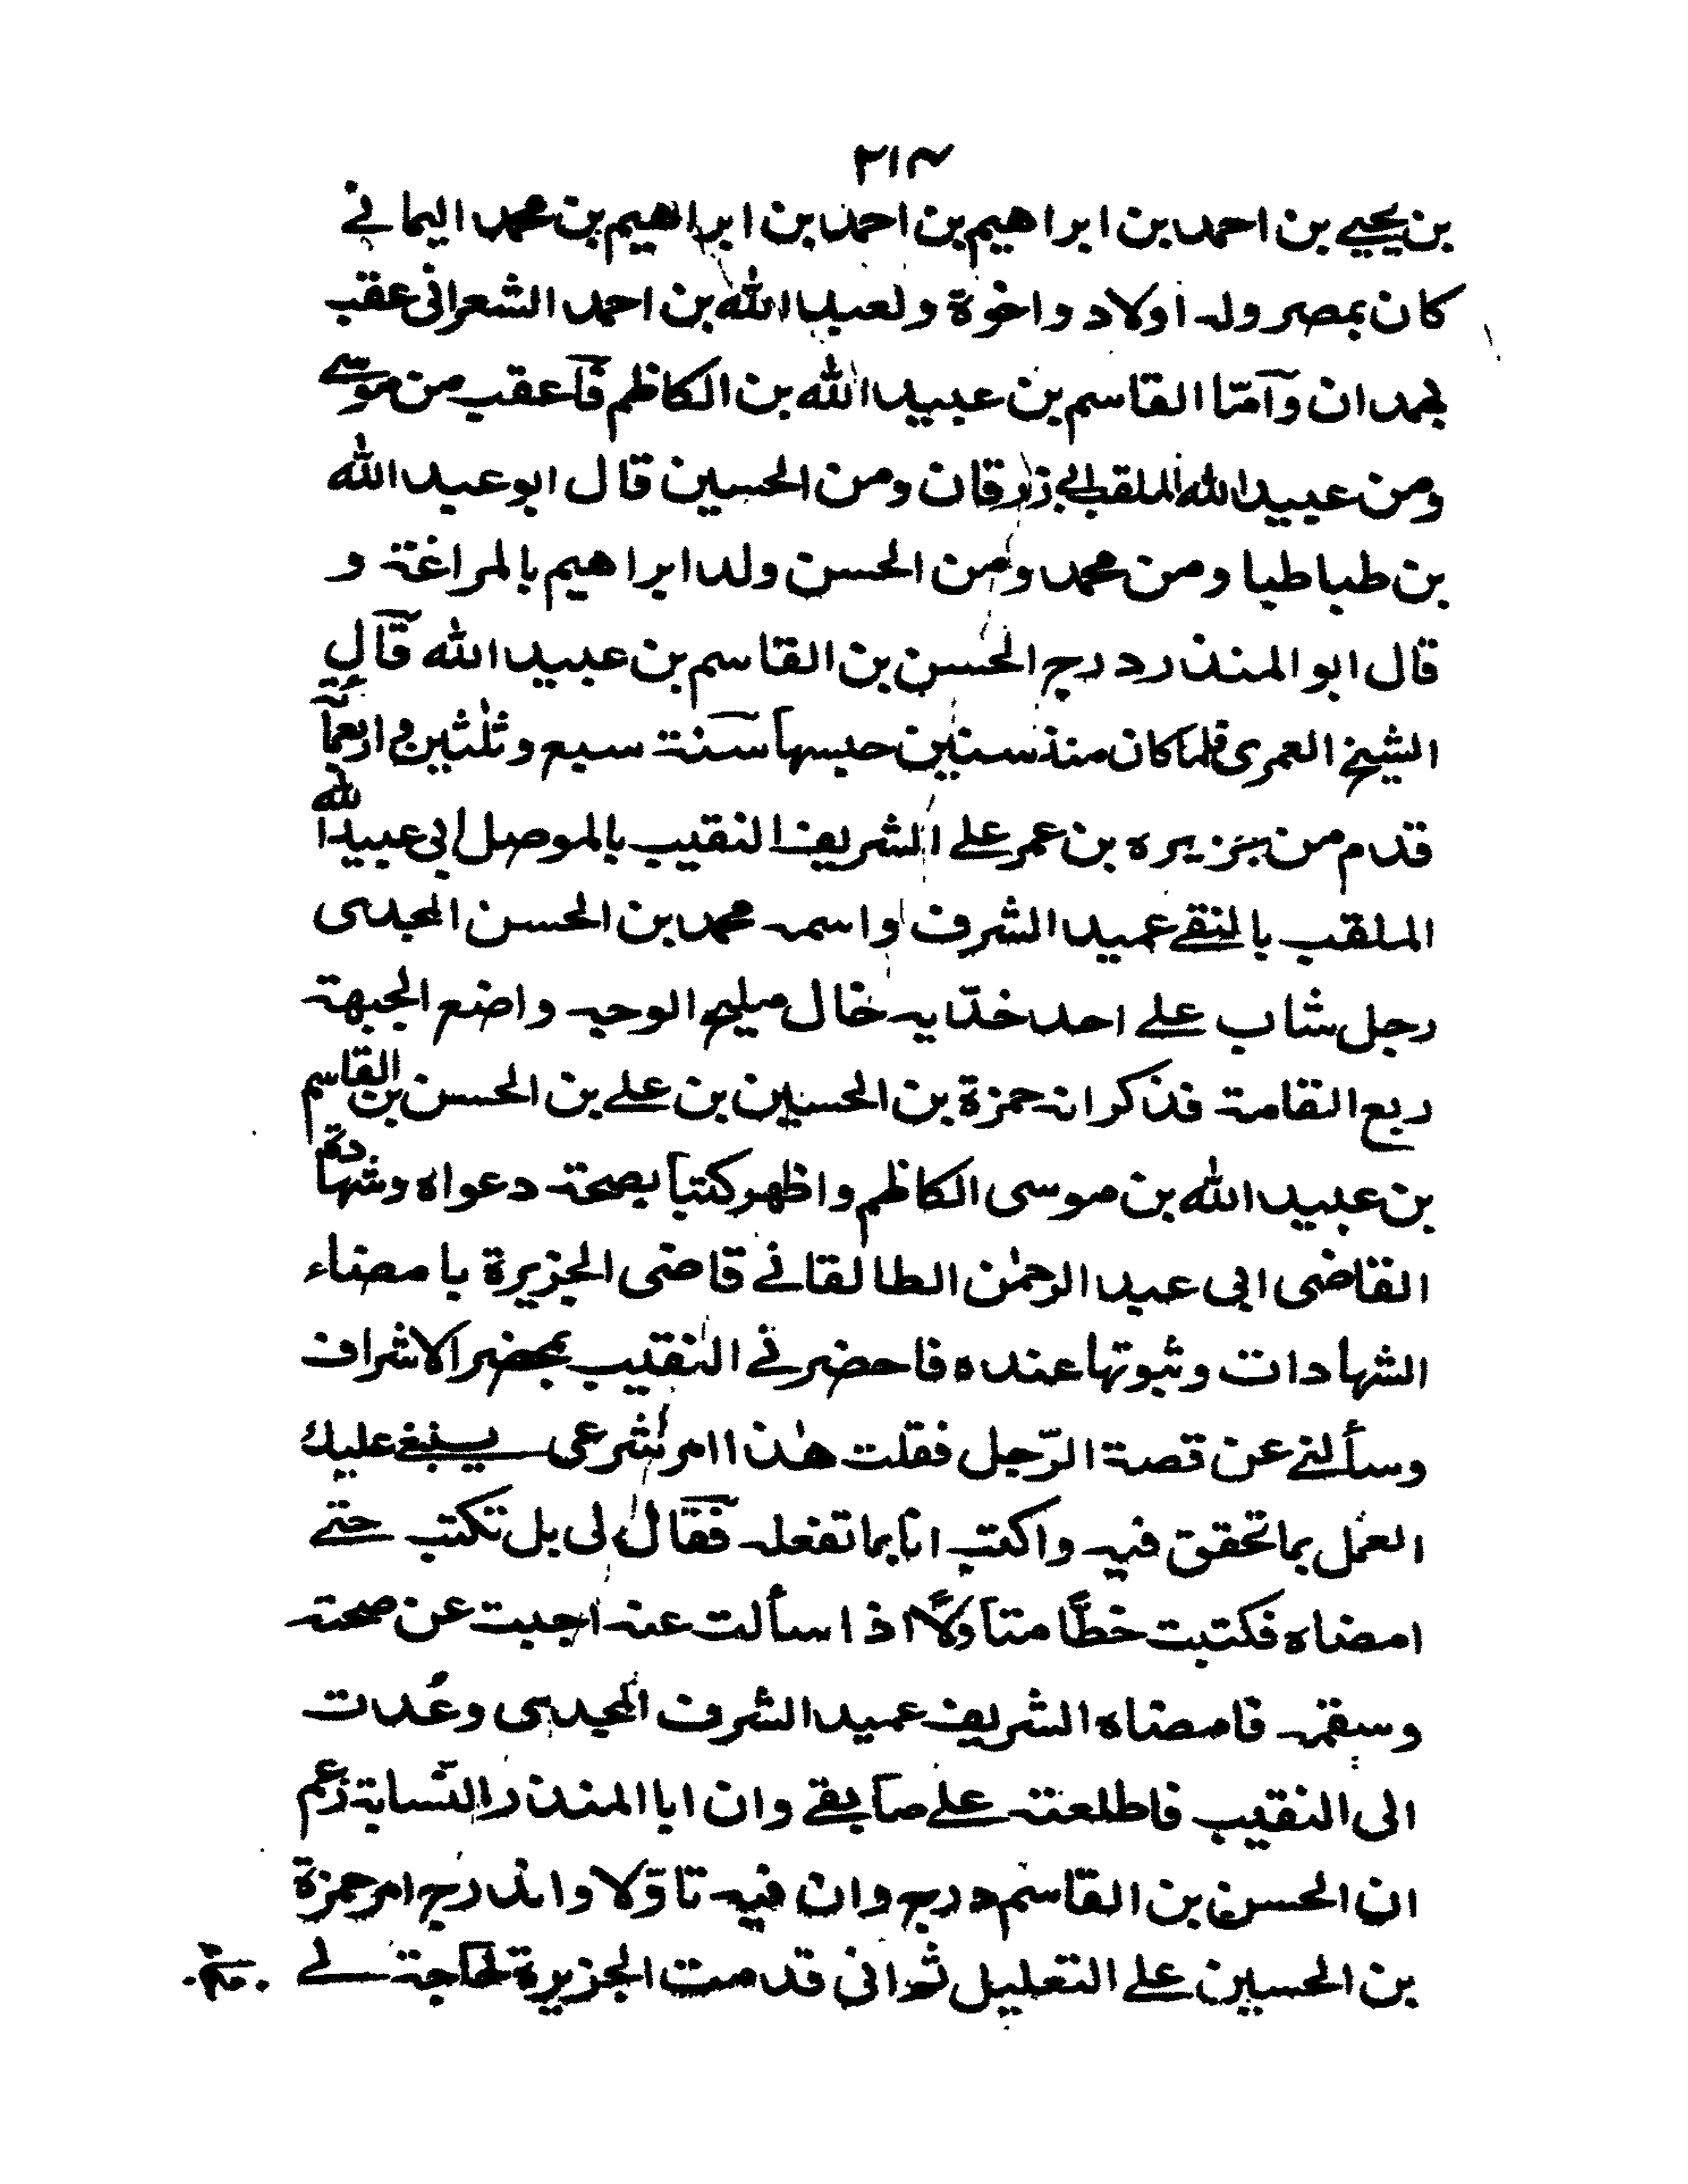 ٢١٤
بن يحيے بن احمد بن ابراهيم بن احمد بن ابراهيم بن محمد اليمانے
كان بمصر وله اولاد واخوة ولعبيد الله بن احمد الشعرانى عقب
بهمدان وآمّا القاسم بن عبيد الله بن الكاظم فآعقب من موسے
ومن عبيد الله الملقب بابى زرقان ومن الحسين قال ابو عبد الله
بن طباطبا ومن محمد ومن الحسن ولد ابراهيم بالمراغة و
قال ابو المنذر درج الحسن بن القاسم بن عبيد الله قال لے
الشيخ العمرى فلما كان منذ سنتين حبسها سنة سبع وثلثين واربعمآئة
قدم من جزيره بن عمر علے الشريف النقيب بالموصل ابى عبيد الله
الملقب بالتقے عميد الشرف واسمه محمد بن الحسن المحمدى
رجل شاب علے احد خدّايه خال مليح الوجه واضع الجبهة
ربع القامة فذكر انه حمزة بن الحسين بن علے بن الحسن بن القاسم
بن عبيد الله بن موسى الكاظم واظهر كتبا بصحة دعواه وشهادة
القاضى ابى عبد الرحمٰن الطالقانے قاضى الجزيرة بامضاء
الشهادات وثبوتها عنده فاحضرنے النقيب بمحضر الاشراف
وسألنے عن قصة الرّجل فقلت هٰذا امر شرعى ينبغے عليك
العمل بما تحقق فيه واكتب انا بما تفعله فقال لى بل تكتب حتے
امضاه فكتبت خطًّا متأولًا اذا سألت عنه اجبت عن صحته
وسقمه فامضاه الشريف عميد الشرف المحمدى وعُدات
الى النقيب فاطلعته علے مابقے وان ابا المنذر النسّابة زعم
ان الحسن بن القاسم درج وان فيه تاوّلا وانه درج امر حمزة
بن الحسين علے التعليل ثم انى قدمت الجزيرة لحاجة لے